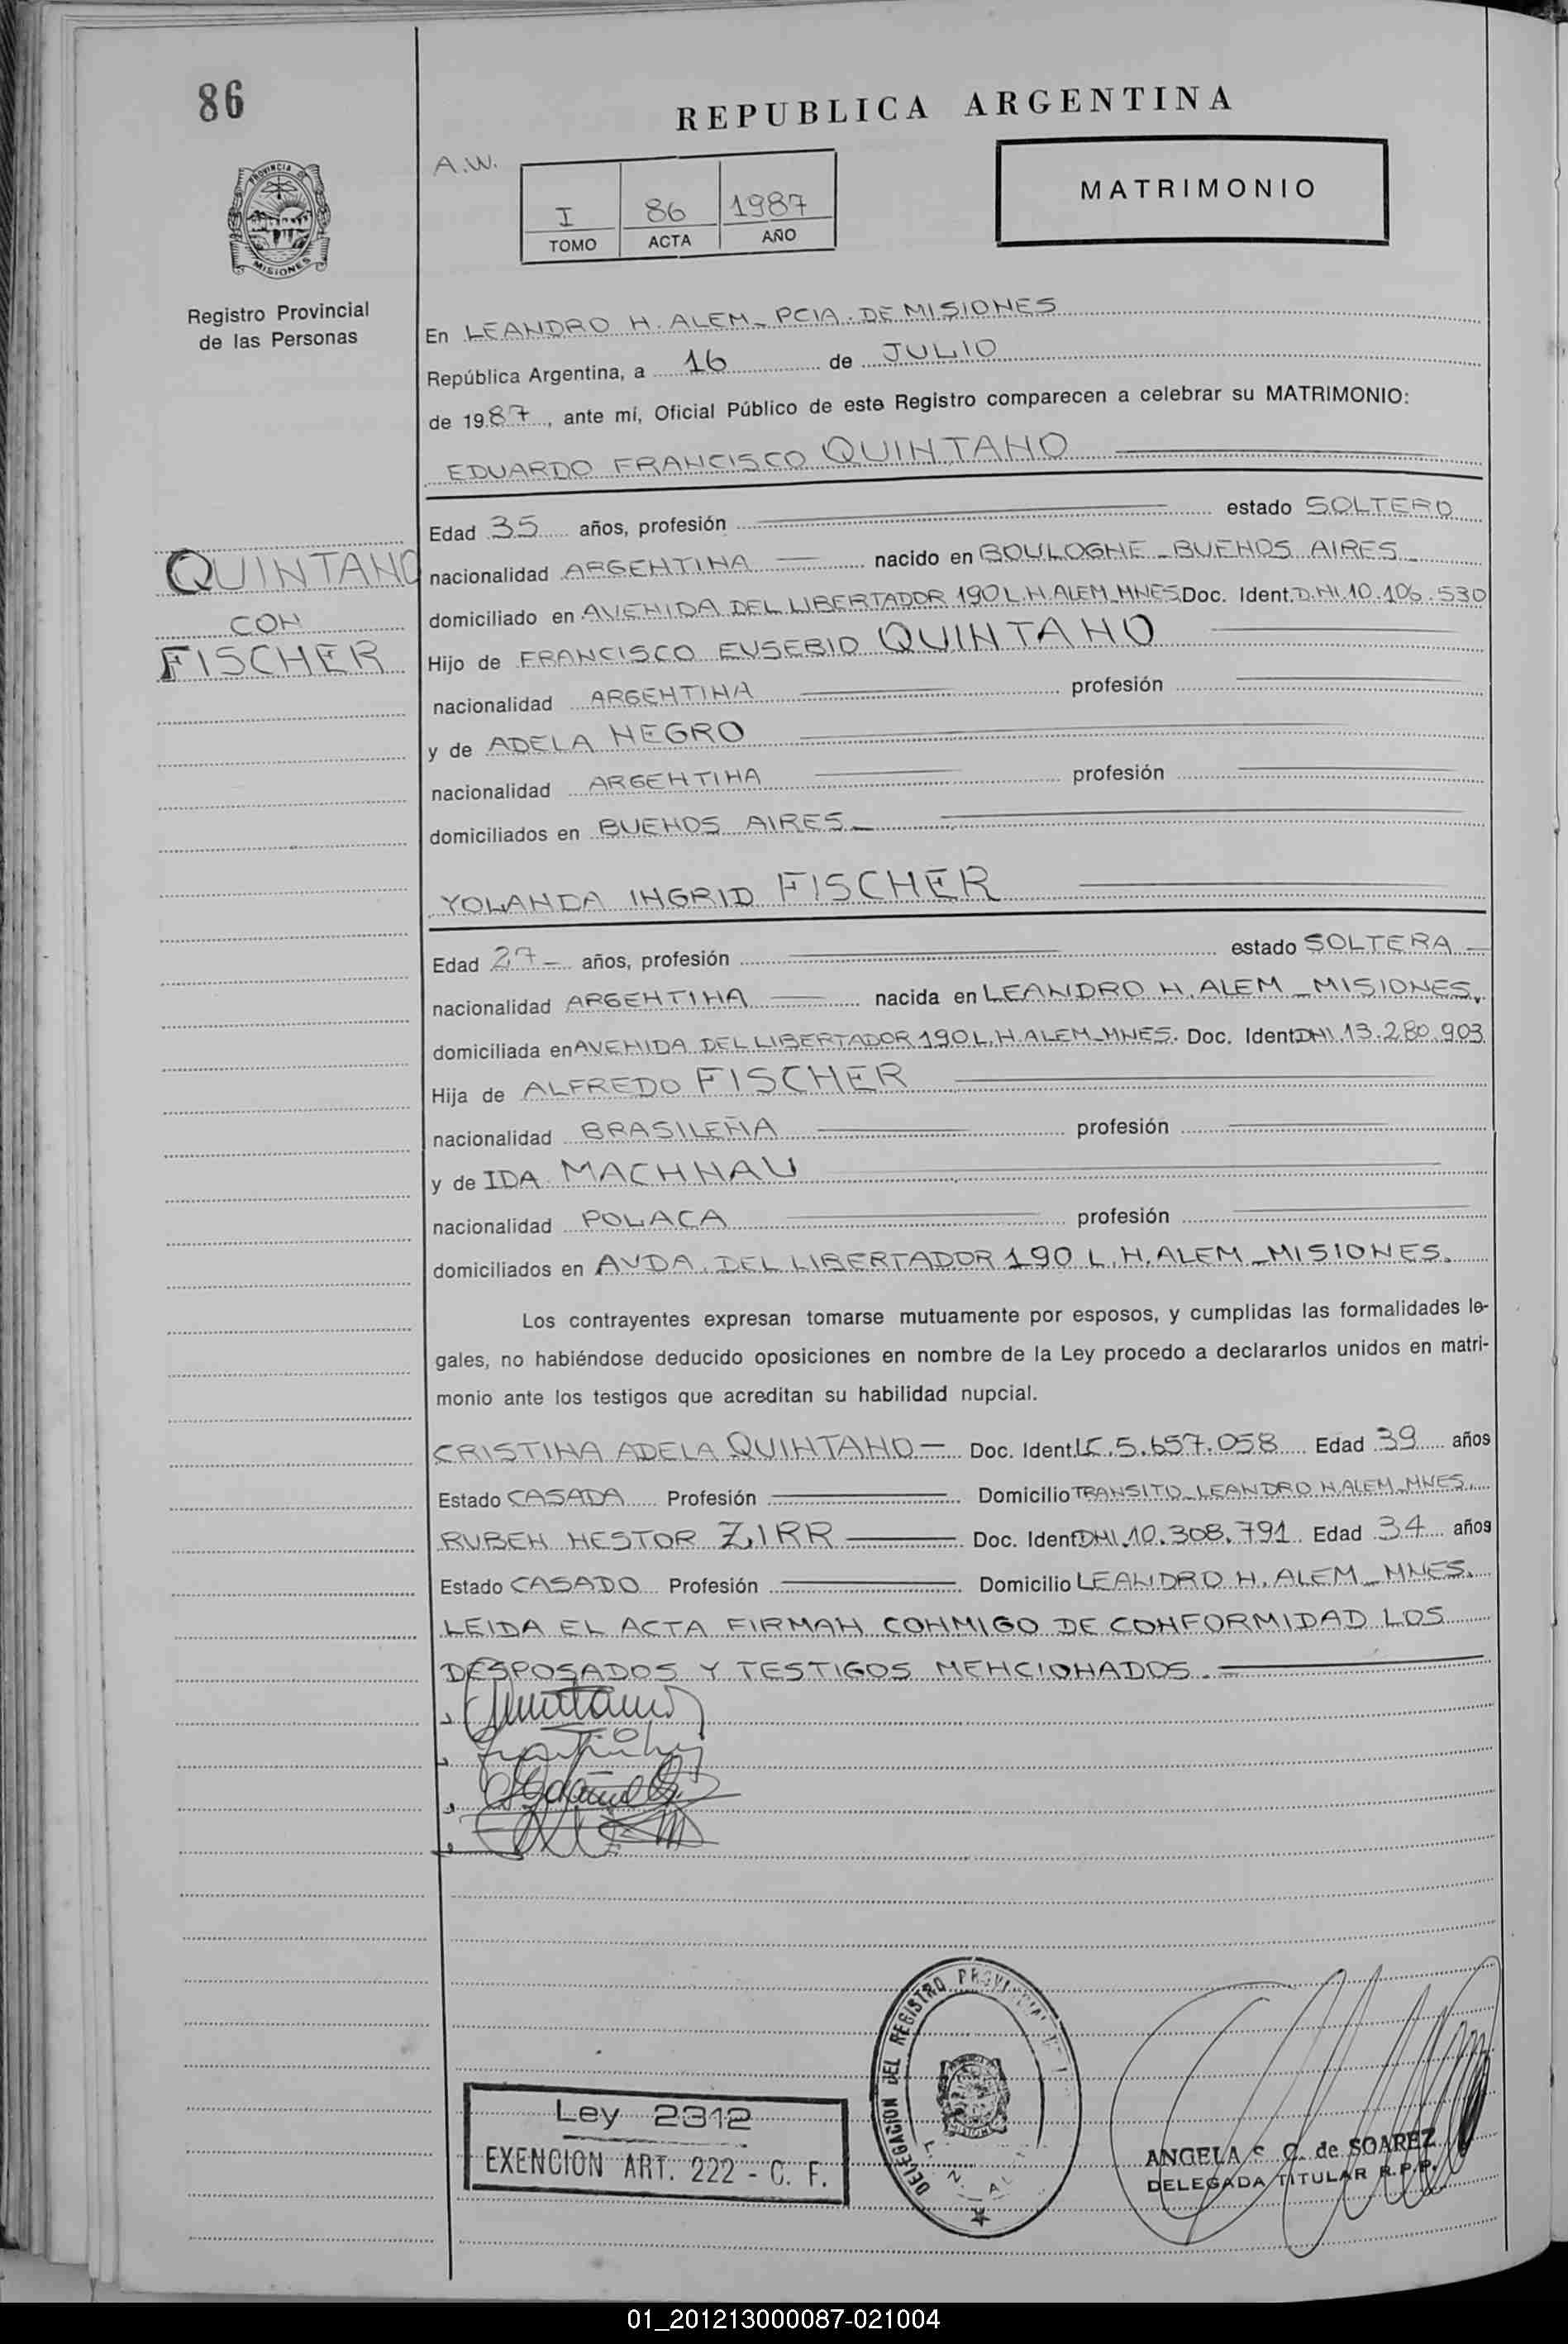 86
REPUBLICA ARGENTINA
A.W.
I 86 1987
TOMO ACTA AÑO
MATRIMONIO
PROVINCIA DE
MISIONES
Registro Provincial
de las Personas
En LEANDRO H. ALEM - PCIA. DE MISIONES
República Argentina, a 16 de JULIO
de 1987, ante mí, Oficial Público de este Registro comparecen a celebrar su MATRIMONIO:
EDUARDO FRANCISCO QUINTANO
QUINTANO
CON
FISCHER
Edad 35 años, profesión estado SOLTERO
nacionalidad ARGENTINA nacido en BOULOGNE - BUENOS AIRES
domiciliado en AVENIDA DEL LIBERTADOR 190 L.N.ALEM-MNES Doc. Ident. D.NI.10.106.530
Hijo de FRANCISCO EUSEBIO QUINTANO
nacionalidad ARGENTINA profesión
y de ADELA NEGRO
nacionalidad ARGENTINA profesión
domiciliados en BUENOS AIRES
YOLANDA INGRID FISCHER
Edad 27 años, profesión estado SOLTERA
nacionalidad ARGENTINA nacida en LEANDRO N. ALEM - MISIONES.
domiciliada en AVENIDA DEL LIBERTADOR 190 L.N.ALEM-MNES. Doc. Ident. DNI.13.280.903
Hija de ALFREDO FISCHER
nacionalidad BRASILEÑA profesión
y de IDA MACHNAU
nacionalidad POLACA profesión
domiciliados en AVDA. DEL LIBERTADOR 190 L.N. ALEM - MISIONES.
Los contrayentes expresan tomarse mutuamente por esposos, y cumplidas las formalidades le-
gales, no habiéndose deducido oposiciones en nombre de la Ley procedo a declararlos unidos en matri-
monio ante los testigos que acreditan su habilidad nupcial.
CRISTINA ADELA QUINTANO - Doc. Ident. LC.5.657.058 Edad 39 años
Estado CASADA Profesión Domicilio TRANSITO - LEANDRO N.ALEM-MNES.
RUBEN NESTOR ZIRR Doc. Ident. DNI.10.308.791 Edad 34 años
Estado CASADO Profesión Domicilio LEANDRO N. ALEM - MNES.
LEIDA EL ACTA FIRMAN CONMIGO DE CONFORMIDAD LOS
DESPOSADOS Y TESTIGOS MENCIONADOS.
Quintano
DELEGACION DEL REGISTRO PROVINCIAL
Ley 2312
EXENCION ART. 222 - C. F.
ANGELA S. C. de SOAREZ
DELEGADA TITULAR R.P.P.
01_201213000087-021004